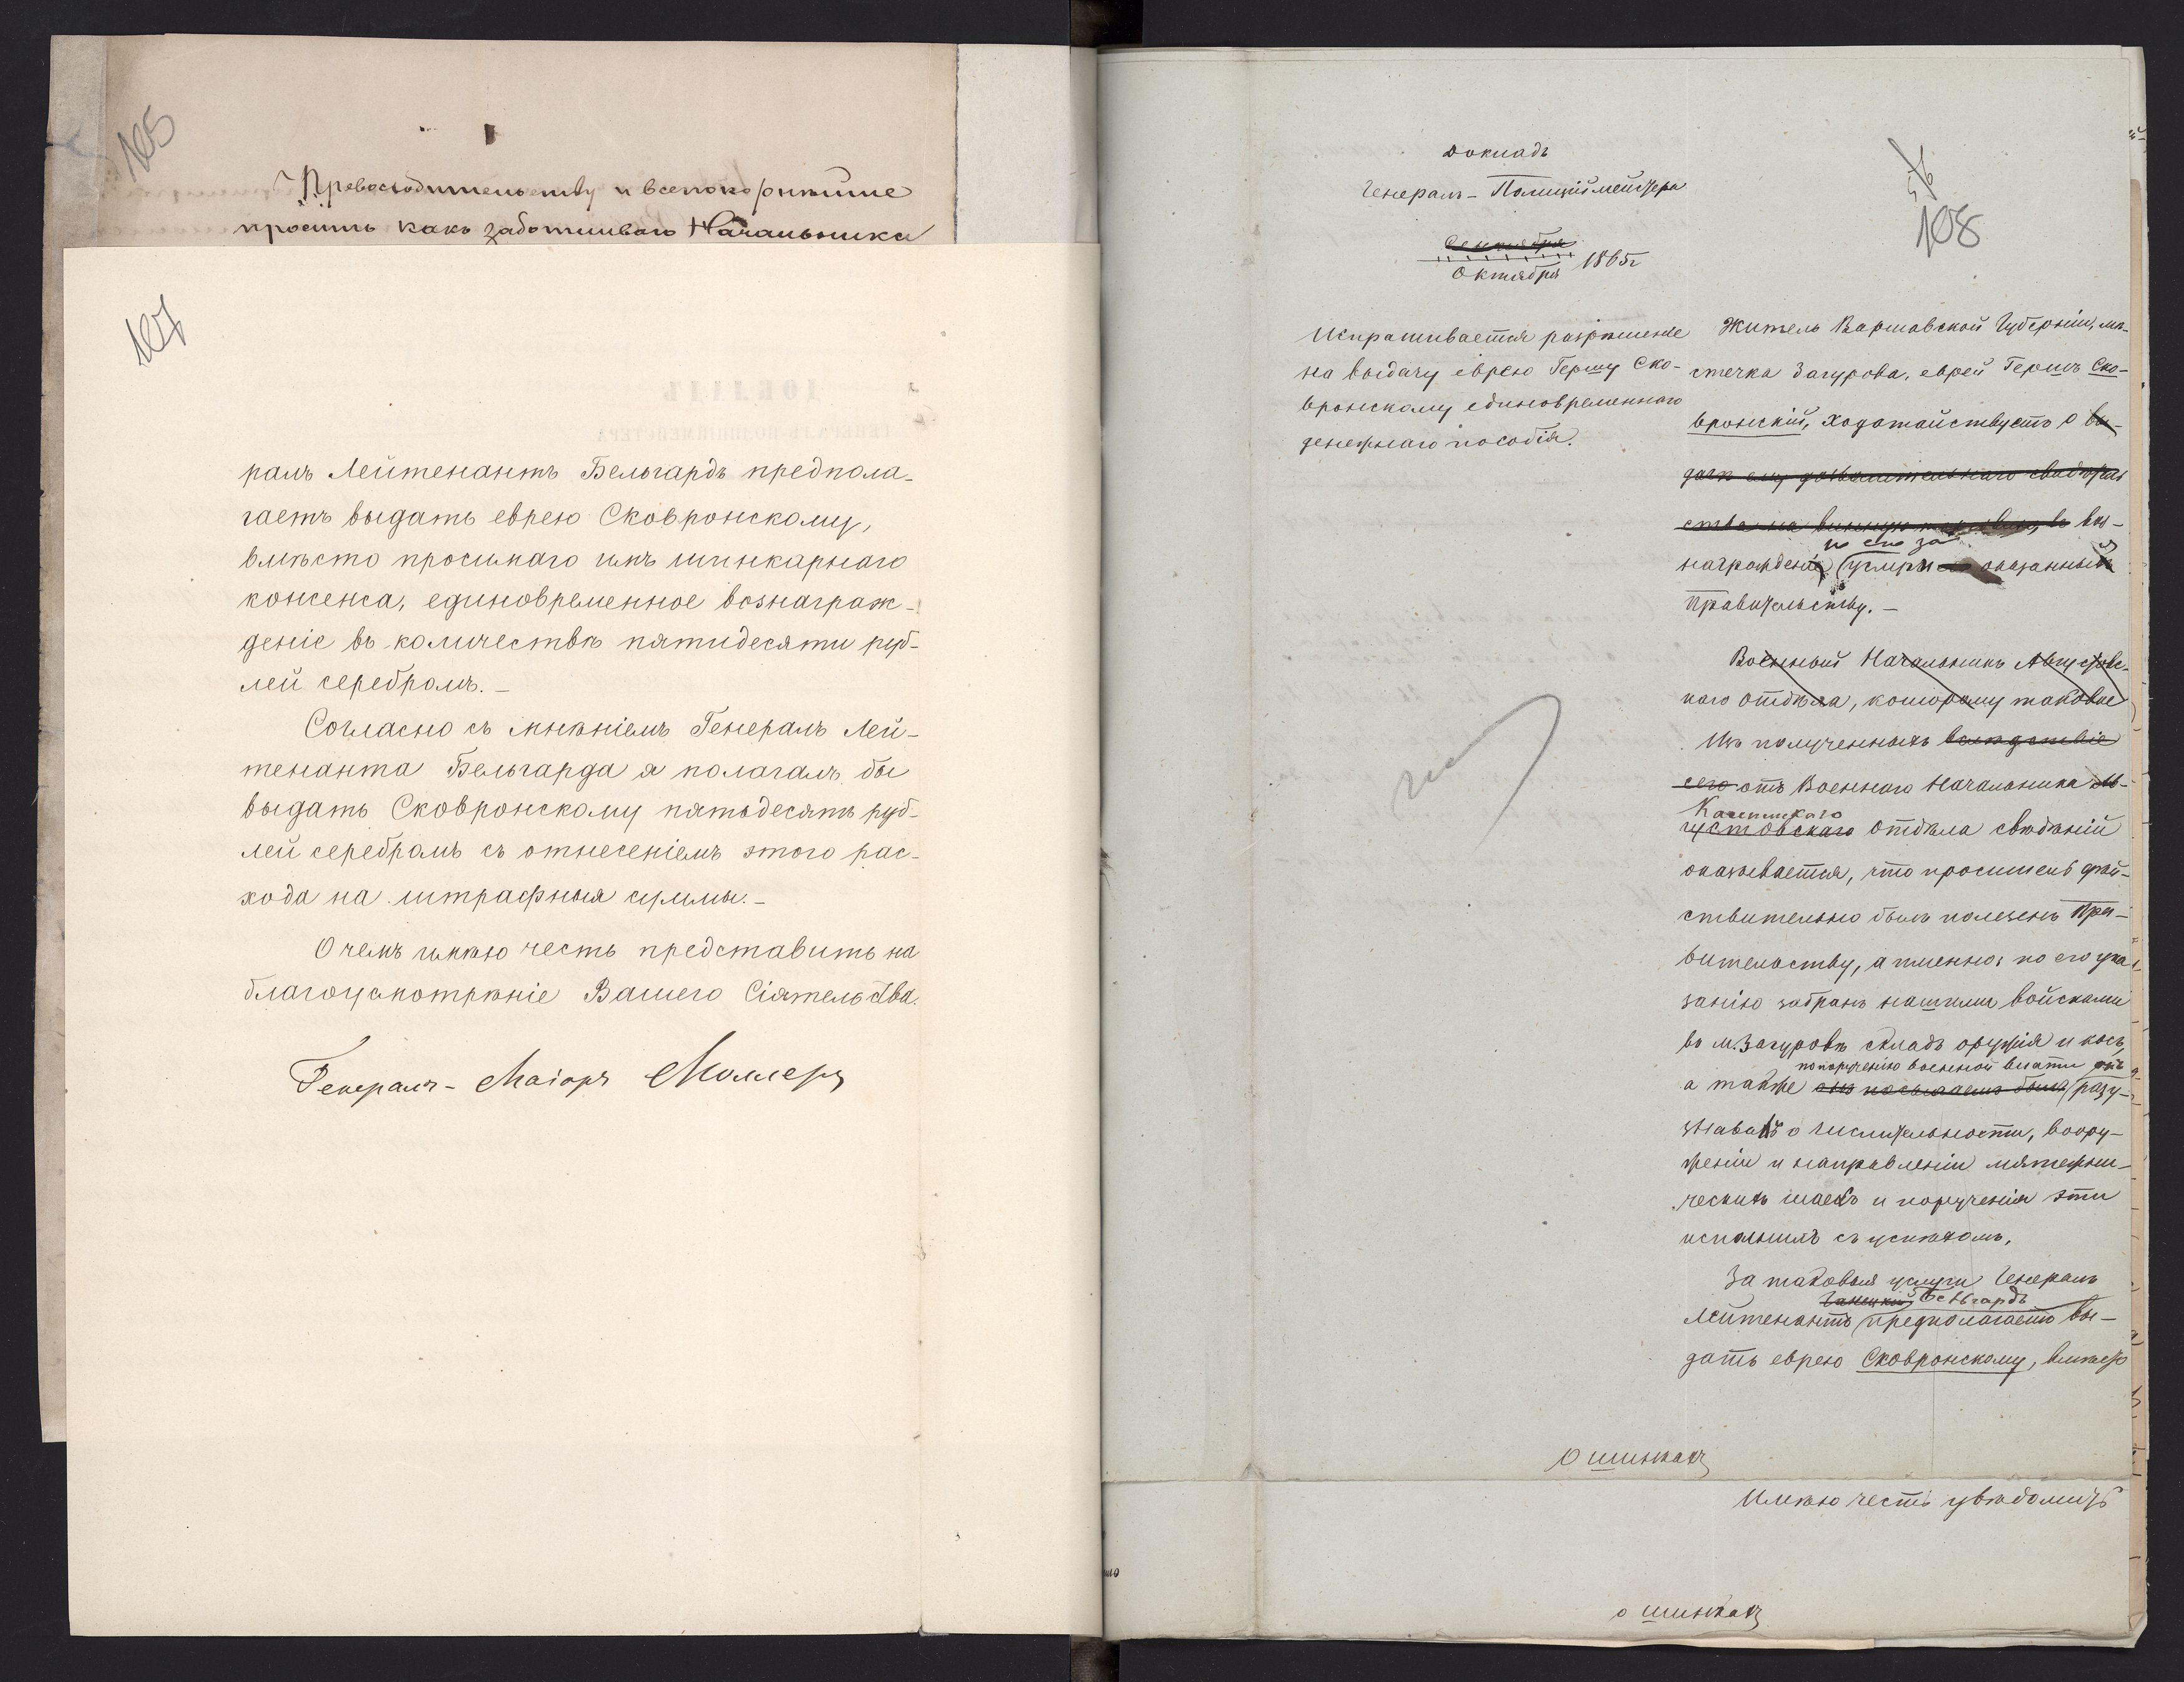 105
Превосходительству и всепокорнѣйше
просить какъ заботливаго Начальника
107
ралъ Лейтенантъ Бельгардъ предпола-
гаетъ выдать еврею Сковронскому,
вмѣсто просимаго имъ шинкарнаго
консенса, единовременное вознаграж-
деніе въ количествѣ пятидесяти руб-
лей серебромъ. –
Согласно съ мнѣніемъ Генералъ Лей-
тенанта Бельгарда я полагалъ бы
выдать Сковронскому пятьдесятъ руб-
лей серебромъ съ отнесеніемъ этого рас-
хода на штрафныя суммы. –
О чемъ имѣю честь представить на
благоусмотрѣніе Вашего Сіятельства.
Генералъ-Маіоръ Моллеръ
Докладъ
Генералъ-Полиціймейстера
Сентября
Октября 1865 г
108
Испрашивается разрѣшеніе
на выдачу еврею Гершу Ско-
вронскому единовременнаго
денежнаго пособія.
Житель Варшавской Губерніи, мѣ-
стечка Загурова, еврей Гершъ Ско-
вронскій, ходатайствуетъ о вы-
дачѣ ему дозволительнаго свидѣтель
ства на винную торговлю, въ воз-
за
награжденіе услуги оказанныя
Правительству. –
Военный Начальникъ Августовс-
каго отдѣла, которому таковое
Изъ полученныхъ вслѣдствіе
сего отъ Военнаго Начальника Ав-
Калишскаго
густовскаго отдѣла свѣдѣній
оказывается, что проситель дѣй-
ствительно былъ полезенъ Пра-
вительству, а именно: по его ука
занію забранъ нашими войсками
въ м. Загуровѣ складъ оружія и косъ,
по порученію военной власти
а также онъ посылаемъ былъ разу-
знавалъ о числительности, воору-
женіи и направленіи мятежни-
ческихъ шаекъ и порученія эти
исполнилъ съ успѣхомъ.
За таковыя услуги Генералъ
Ганецкій Бельгардъ
Лейтенантъ предполагаетъ вы-
дать еврею Сковронскому, вмѣсто
О шинкахъ
Имѣю честь увѣдомить
о шинкахъ